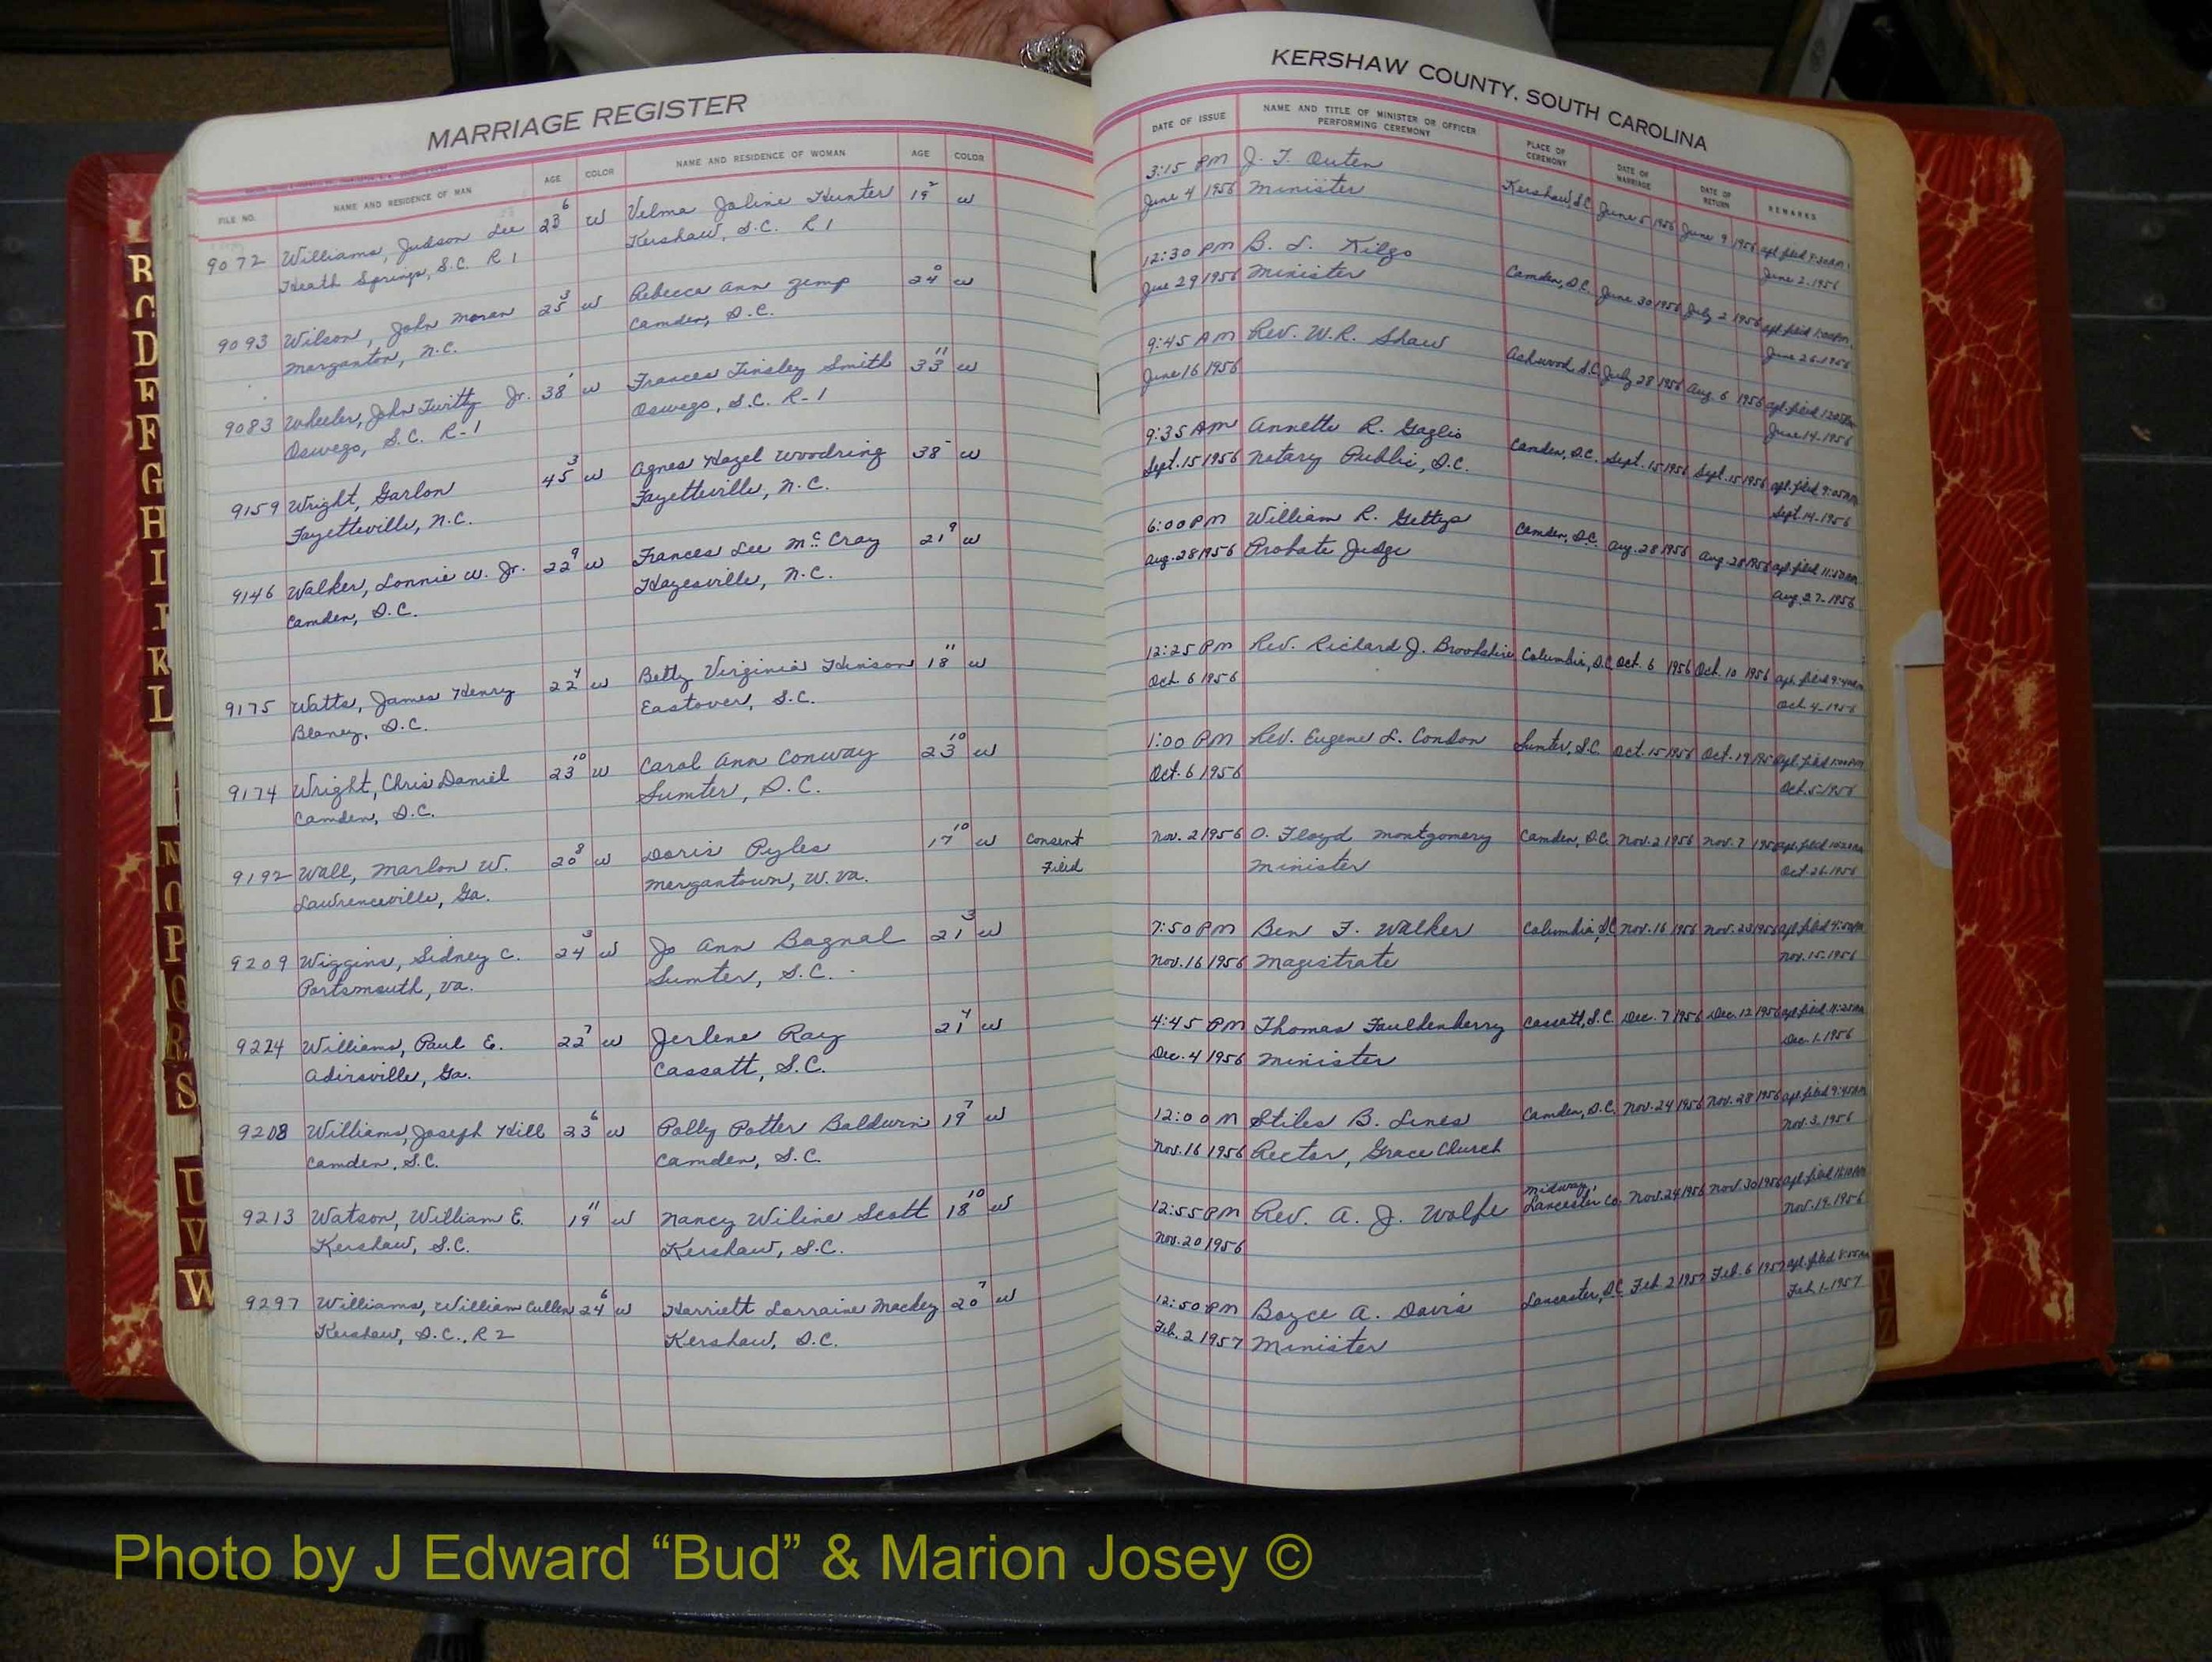 MARRIAGE REGISTER
FILE NO. NAME AND RESIDENCE OF MAN AGE COLOR NAME AND RESIDENCE OF WOMAN AGE COLOR
9072 Williams, Judson Lee 23 6 w Velma Joline Hunter 19 2 w
Heath Springs, S.C. R 1 Kershaw, S.C. R 1
9093 Wilson, John Moran 25 3 w Rebecca Ann Zemp 24 0 w
Morganton, N.C. Camden, S.C.
9083 Wheeler, John Twitty Jr. 38 1 w Frances Tinsley Smith 33 11 w
Oswego, S.C. R-1 Oswego, S.C. R-1
9159 Wright, Garlon 45 3 w Agnes Hazel Woodring 38 w
Fayetteville, N.C. Fayetteville, N.C.
9146 Walker, Lonnie W. Jr. 22 9 w Frances Lee McCray 21 9 w
Camden, S.C. Hayesville, N.C.
9175 Watts, James Henry 22 4 w Betty Virginia Hinson 18 11 w
Blaney, S.C. Eastover, S.C.
9174 Wright, Chris Daniel 23 10 w Carol Ann Conway 23 10 w
Camden, S.C. Sumter, S.C.
9192 Wall, Marlon W. 20 8 w Doris Pyles 17 10 w Consent
Lawrenceville, Ga. Morgantown, W. Va. Filed
9209 Wiggins, Sidney C. 24 3 w Jo Ann Bagnal 21 3 w
Portsmouth, Va. Sumter, S.C.
9224 Williams, Paul E. 22 7 w Jerlene Ray 21 4 w
Adirsville, Ga. Cassatt, S.C.
9208 Williams, Joseph Hill 23 6 w Polly Potter Baldwin 19 7 w
Camden, S.C. Camden, S.C.
9213 Watson, William E. 19 11 w Nancy Wiline Scott 18 10 w
Kershaw, S.C. Kershaw, S.C.
9297 Williams, William Cullen 24 6 w Harriett Lorraine Mackey 20 7 w
Kershaw, S.C., R 2 Kershaw, S.C.
KERSHAW COUNTY, SOUTH CAROLINA
DATE OF ISSUE NAME AND TITLE OF MINISTER OR OFFICER PERFORMING CEREMONY PLACE OF CEREMONY DATE OF MARRIAGE DATE OF RETURN REMARKS
3:15 PM J. T. Outen Kershaw, S.C. June 5 1956 June 9 1956 apl. filed
June 4 1956 Minister June 2-1956
12:30 PM B. L. Kilgo Camden, S.C. June 30 1956 July 2 1956 apl. filed
June 29 1956 Minister June 26-1956
9:45 AM Rev. W.R. Shaw Ashwood S.C. July 28 1956 Aug. 6 1956 apl. filed
June 16 1956 June 14-1956
9:35 AM Annette R. Gaglio Camden, S.C. Sept. 15 1956 Sept. 15 1956 apl. filed 9:05 AM
Sept. 15 1956 Notary Public, S.C. Sept. 14-1956
6:00 PM William R. Gettys Camden, S.C. Aug. 28 1956 Aug. 28 1956 apl. filed 11:50 AM
Aug. 28 1956 Probate Judge Aug. 27-1956
12:25 PM Rev. Richard J. Brookshire Columbia, S.C. Oct. 6 1956 Oct. 10 1956 apl. filed
Oct. 6 1956 Oct. 4-1956
1:00 PM Rev. Eugene L. Condon Sumter, S.C. Oct. 15 1956 Oct. 19 apl. filed
Oct. 6 1956 Oct. 5-1956
Nov. 2 1956 O. Floyd Montgomery Camden, S.C. Nov. 2 1956 Nov. 7 apl. filed
Minister Oct. 26-1956
7:50 PM Ben F. Walker Columbia, S.C. Nov. 16 1956 Nov. 23 1956 apl. filed
Nov. 16 1956 Magistrate Nov. 15-1956
4:45 PM Thomas Faulkenberry Cassatt, S.C. Dec. 7 1956 Dec. 12 1956 apl. filed 11:25 AM
Dec. 4 1956 Minister Dec. 1-1956
12:00 M Stiles B. Lines Camden, S.C. Nov. 24 1956 Nov. 28 1956 apl. filed 9:45 AM
Nov. 16 1956 Rector, Grace Church Nov. 3-1956
12:55 PM Rev. A. J. Wolfe Midway, Lancaster Co. Nov. 24 1956 Nov. 30 1956 apl. filed
Nov. 20 1956 Nov. 19-1956
12:50 PM Boyce A. Davis Lancaster, S.C. Feb. 2 1957 Feb. 6 1957 apl. filed
Feb. 2 1957 Minister Feb. 1-1957
D
F
G
H
I
K
L
N
O
P
Q
R
S
U
V
W
Y
Z
Photo by J Edward “Bud” & Marion Josey ©